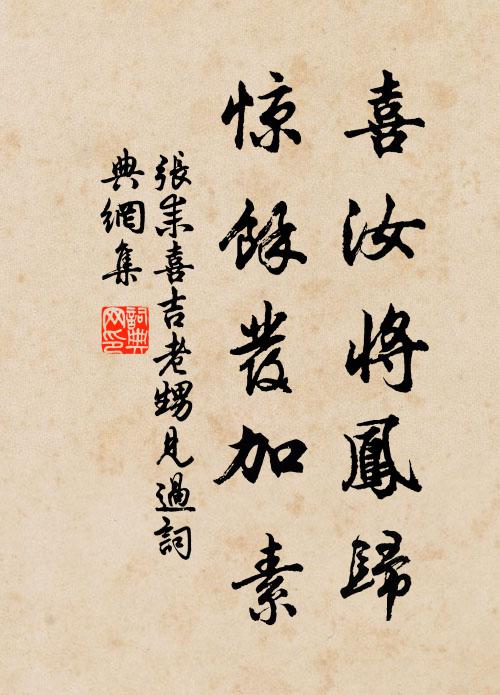 喜汝將鳳歸
惊餘發加素
張耒喜吉老甥見過詞
典網集
詞典
网印